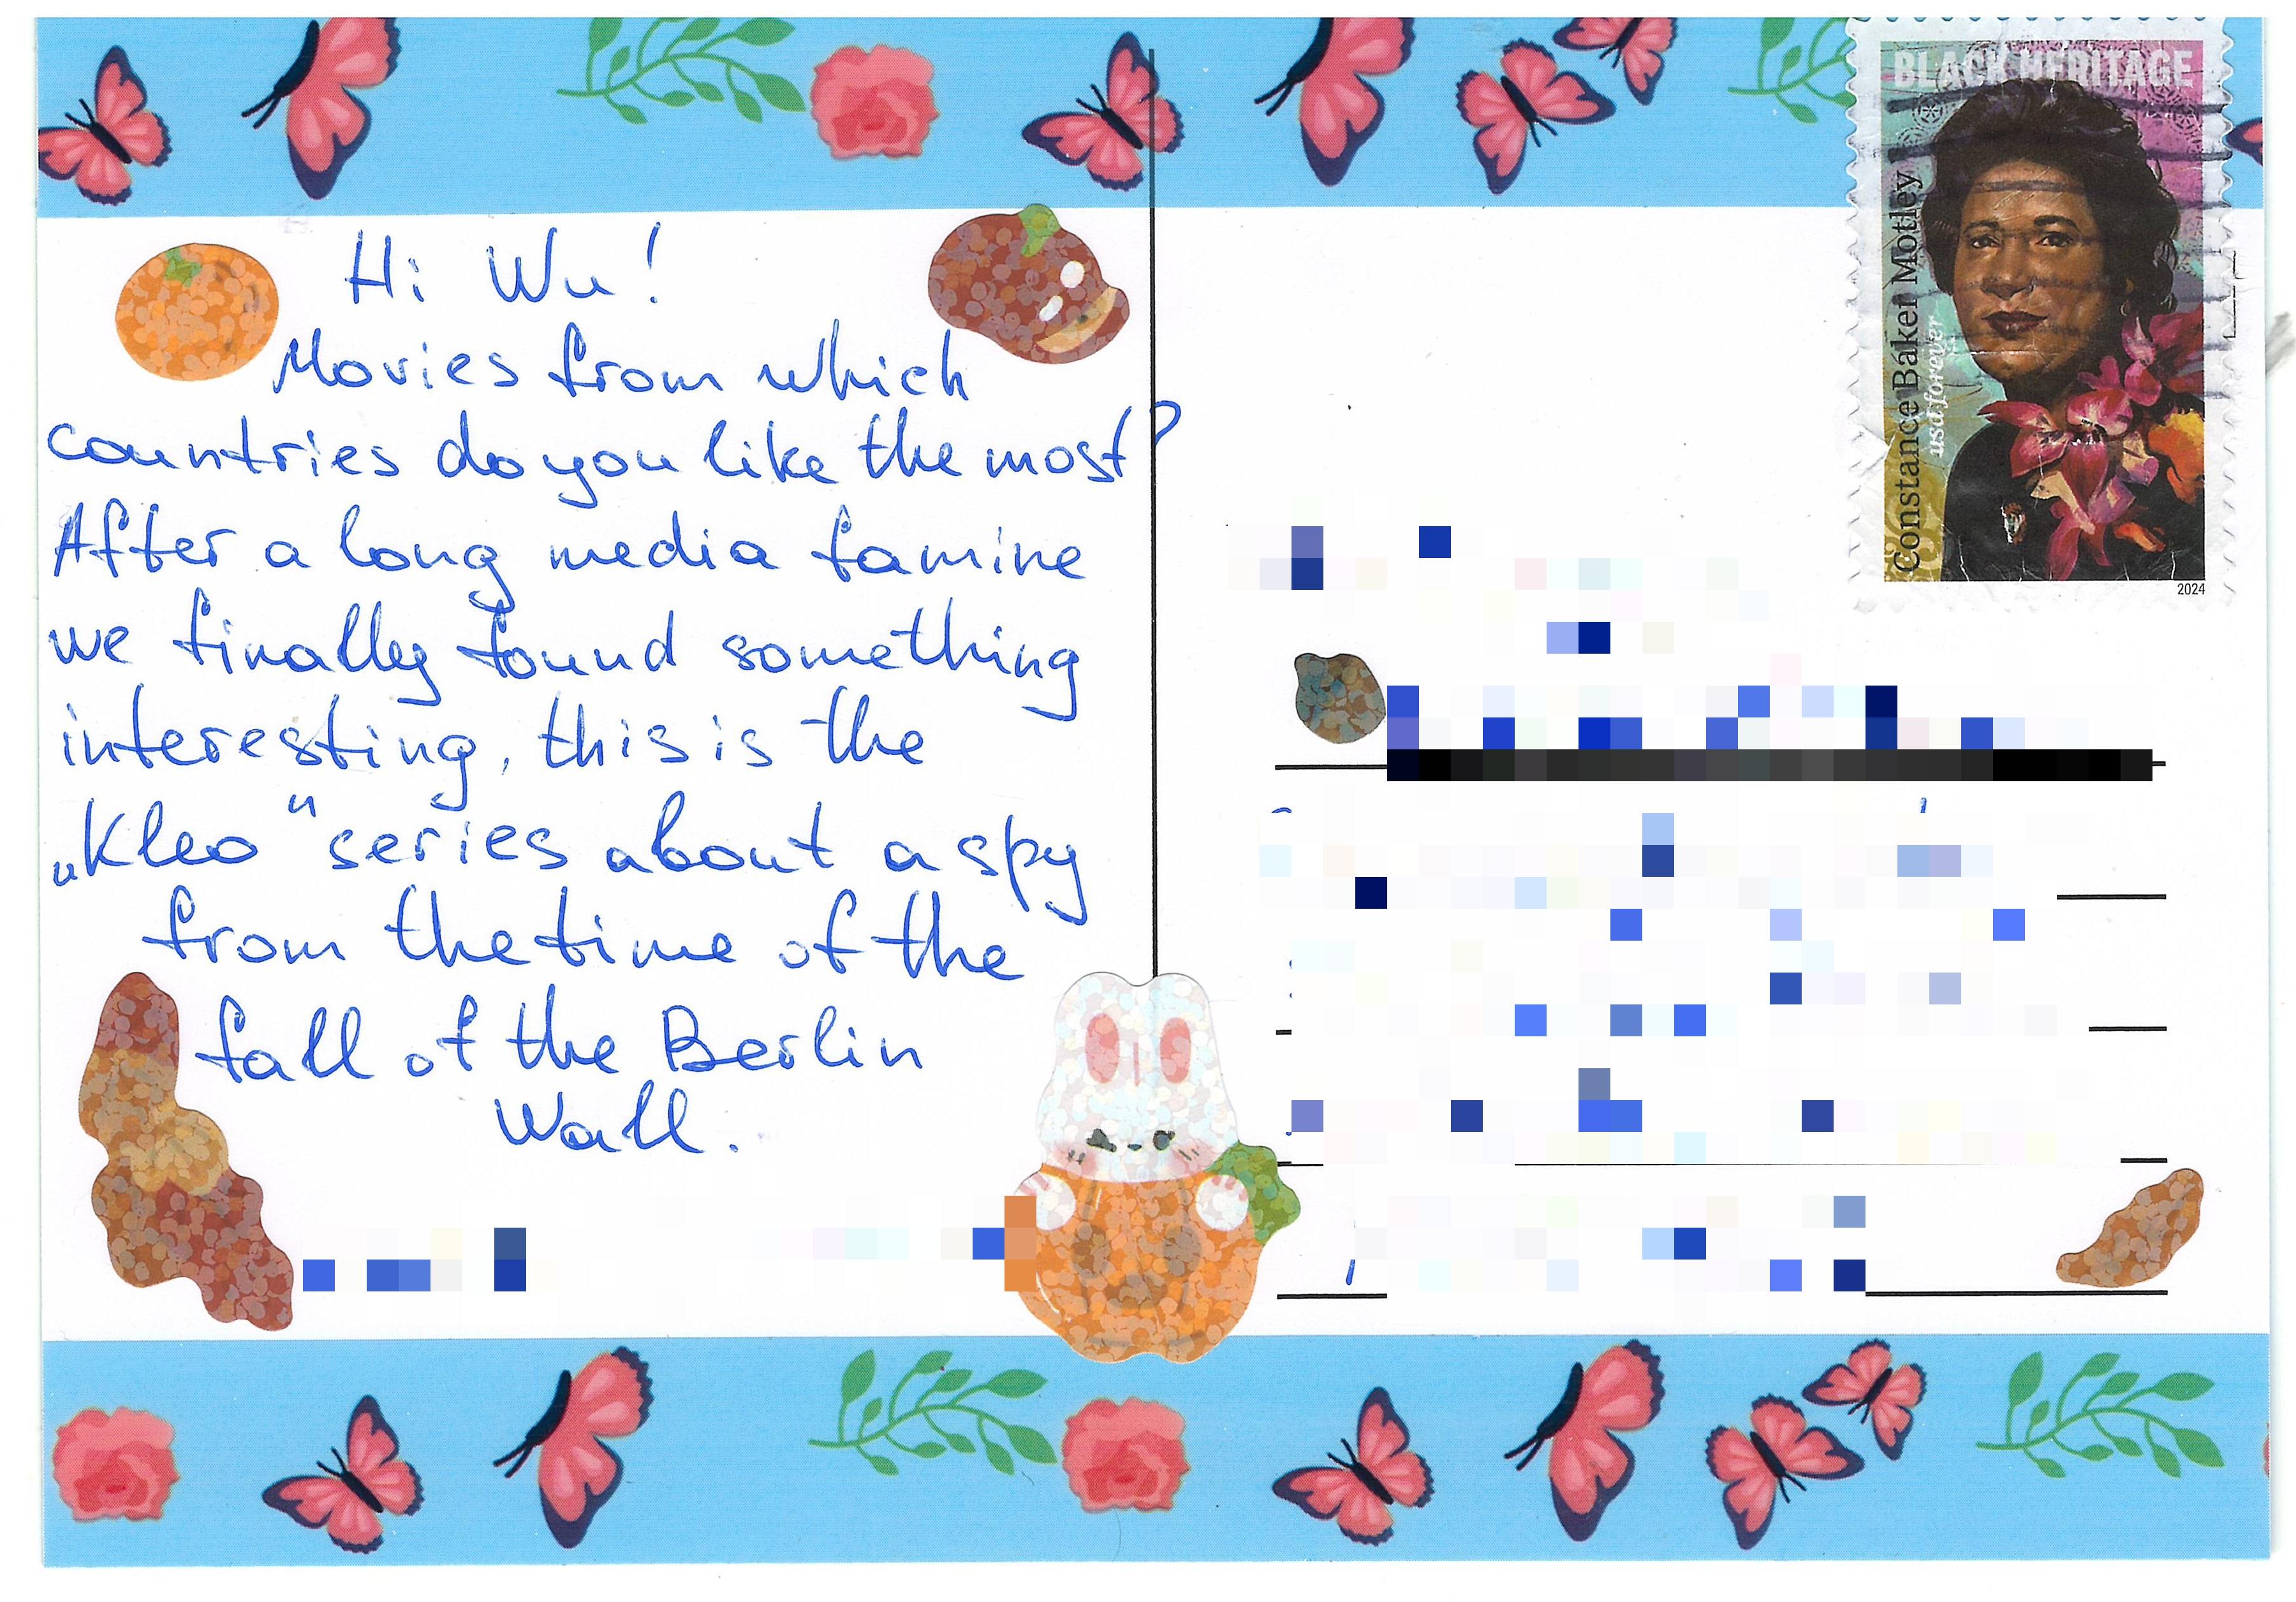 Hi Wu!
Movies from which
countries do you like the most?
After a long media famine
we finally found something
interesting, this is the
„Kleo" series about a spy
from the time of the
fall of the Berlin
Wall.
BLACK HERITAGE
Constance Baker Motley
usa forever
2024